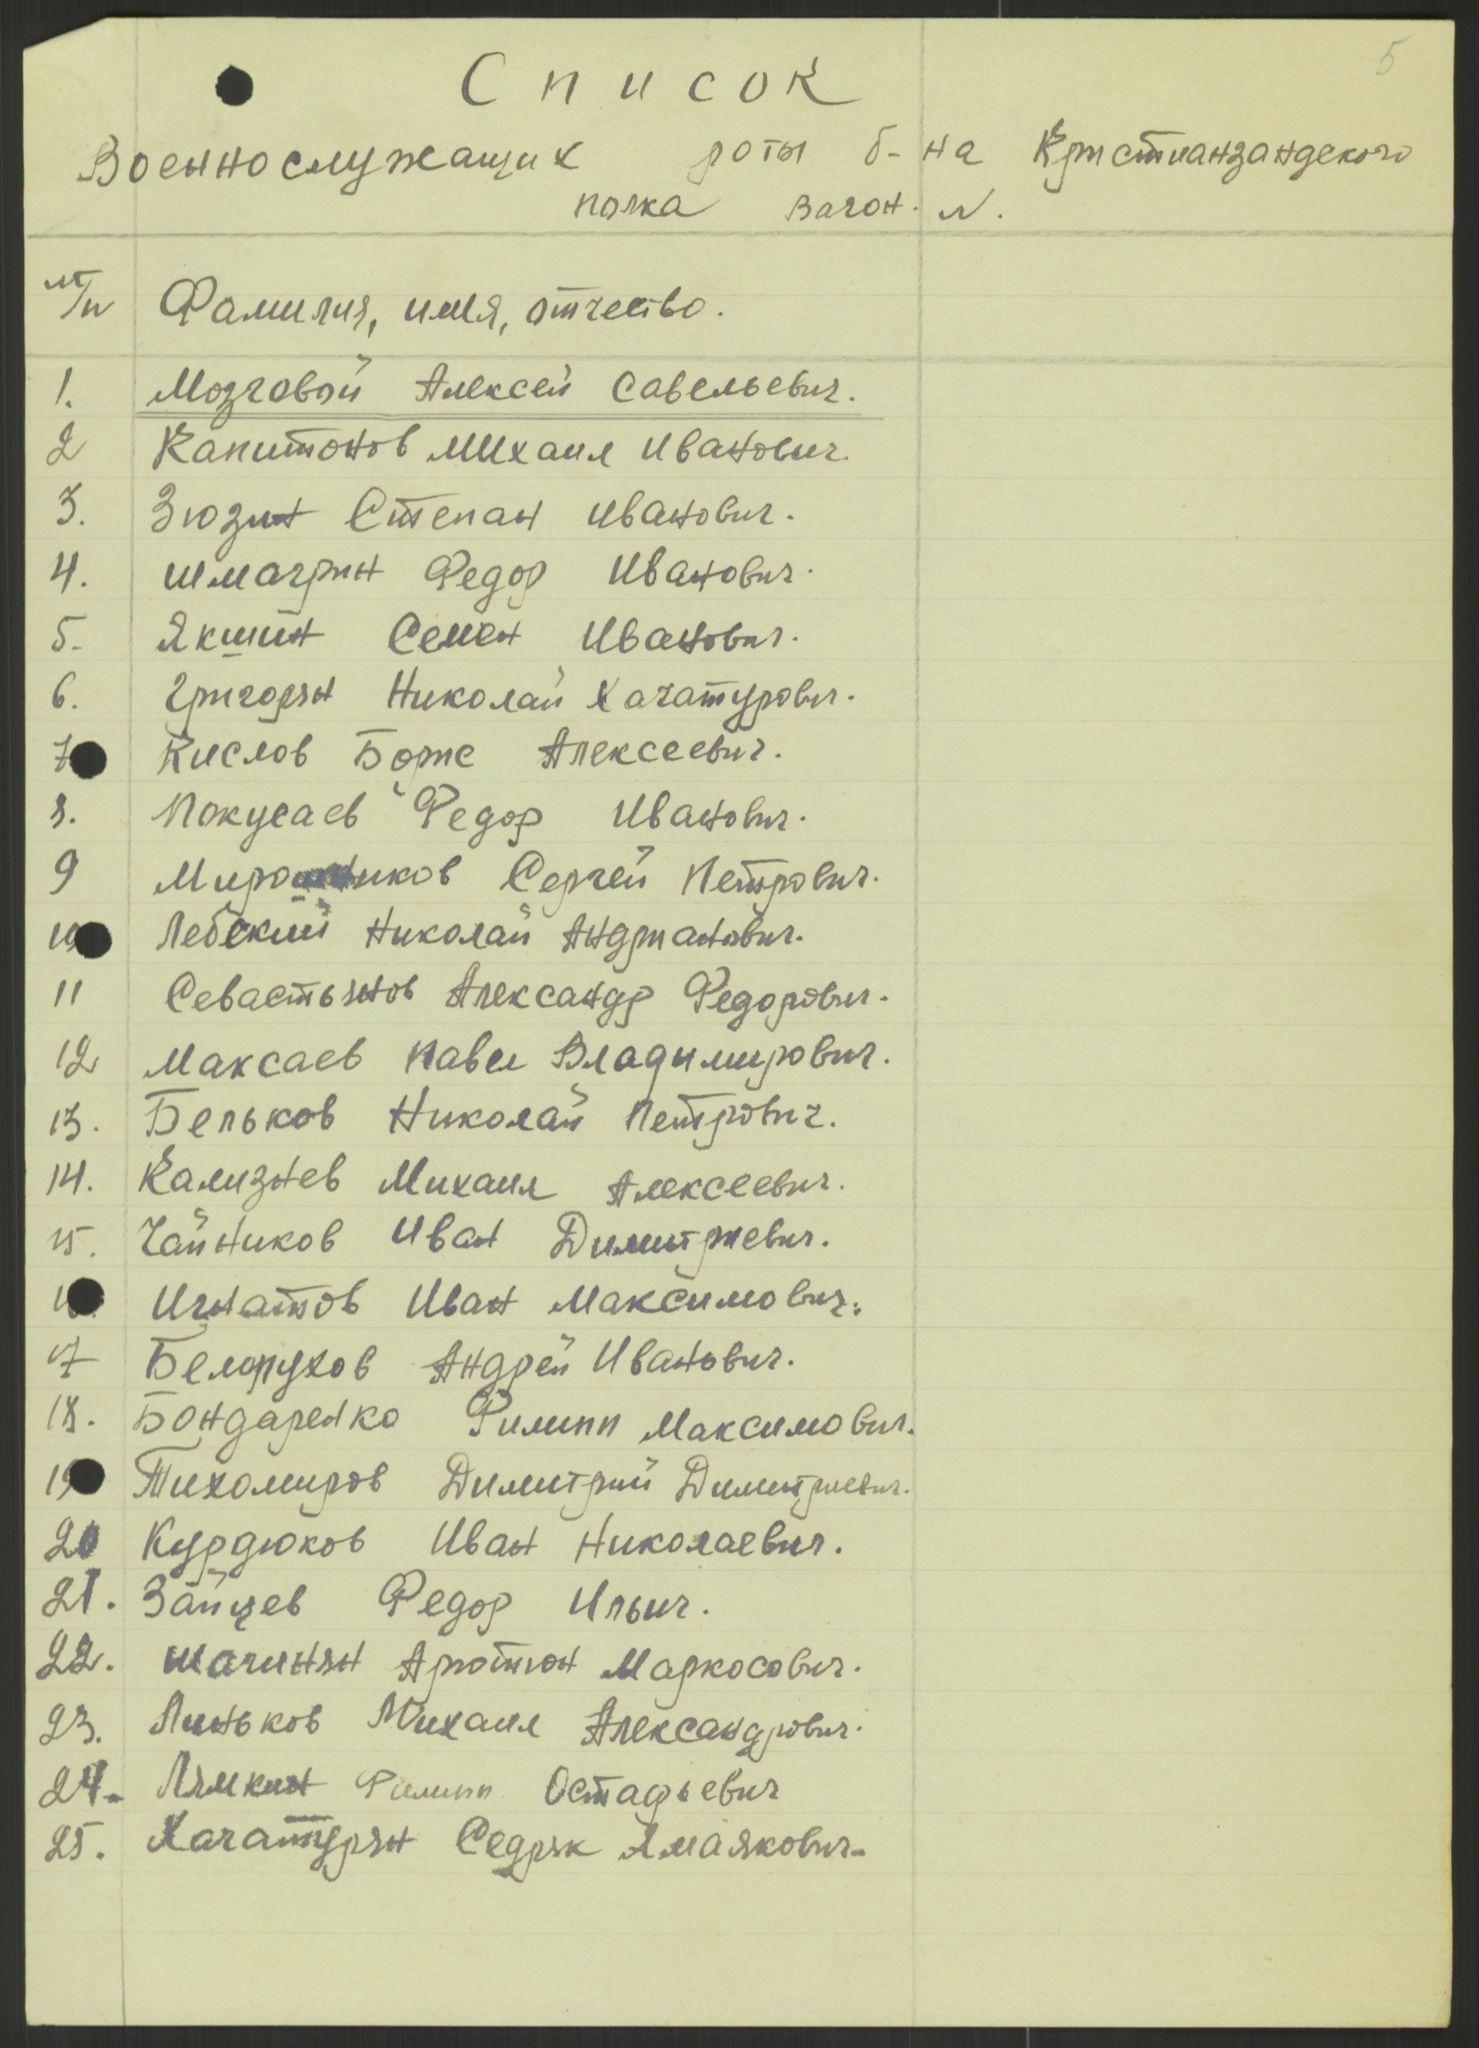 5
Список
Военнослужащих роты б-на Кристианзандского
полка вагон. N.
№/п Фамилия, имя, отчество.
1. Мозговой Алексей Савельевич.
2 Капитонов Михаил Иванович.
3. Зюзин Степан Иванович.
4. Шмагрин Федор Иванович.
5. Якшин Семен Иванович.
6. Григорян Николай Хачатурович.
7 Кислов Борис Алексеевич.
8. Покусаев Федор Иванович.
9 Мирошников Сергей Петрович.
10 Лебский Николай Андрианович.
11 Севастьянов Александр Федорович.
12 Максаев Павел Владимирович.
13. Бельков Николай Петрович.
14. Кализнев Михаил Алексеевич.
15. Чайников Иван Димитриевич.
16 Игнатов Иван Максимович.
17 Белоруков Андрей Иванович.
18. Бондаренко Филипп Максимович.
19 Тихомиров Димитрий Димитриевич.
20 Курдюков Иван Николаевич.
21. Зайцев Федор Ильич.
22. Шагинян Арютюн Маркосович.
23. Линьков Михаил Александрович.
24. Лямкин Филипп Остафьевич
25. Хачатурян Седрак Амаякович.